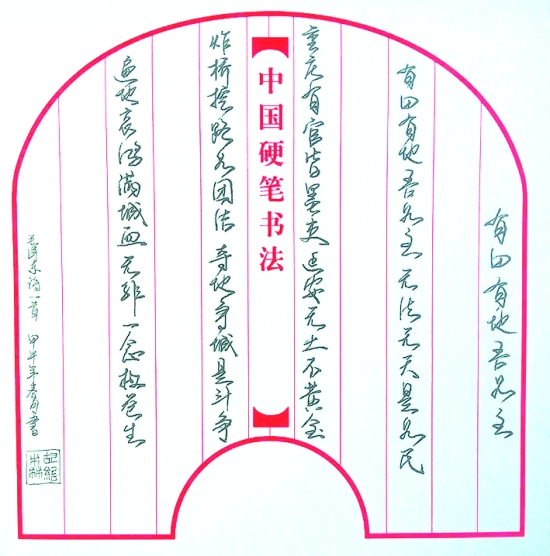 有田有地吾为主
有田有地吾为主无法无天是为民
重庆有官皆墨吏延安无土不黄金
中国硬笔书法
炸桥挖路为团结 夺地争城是斗争
遍地哀鸿满城血无非一念救苍生
毛泽东诗一首 甲午年春月书